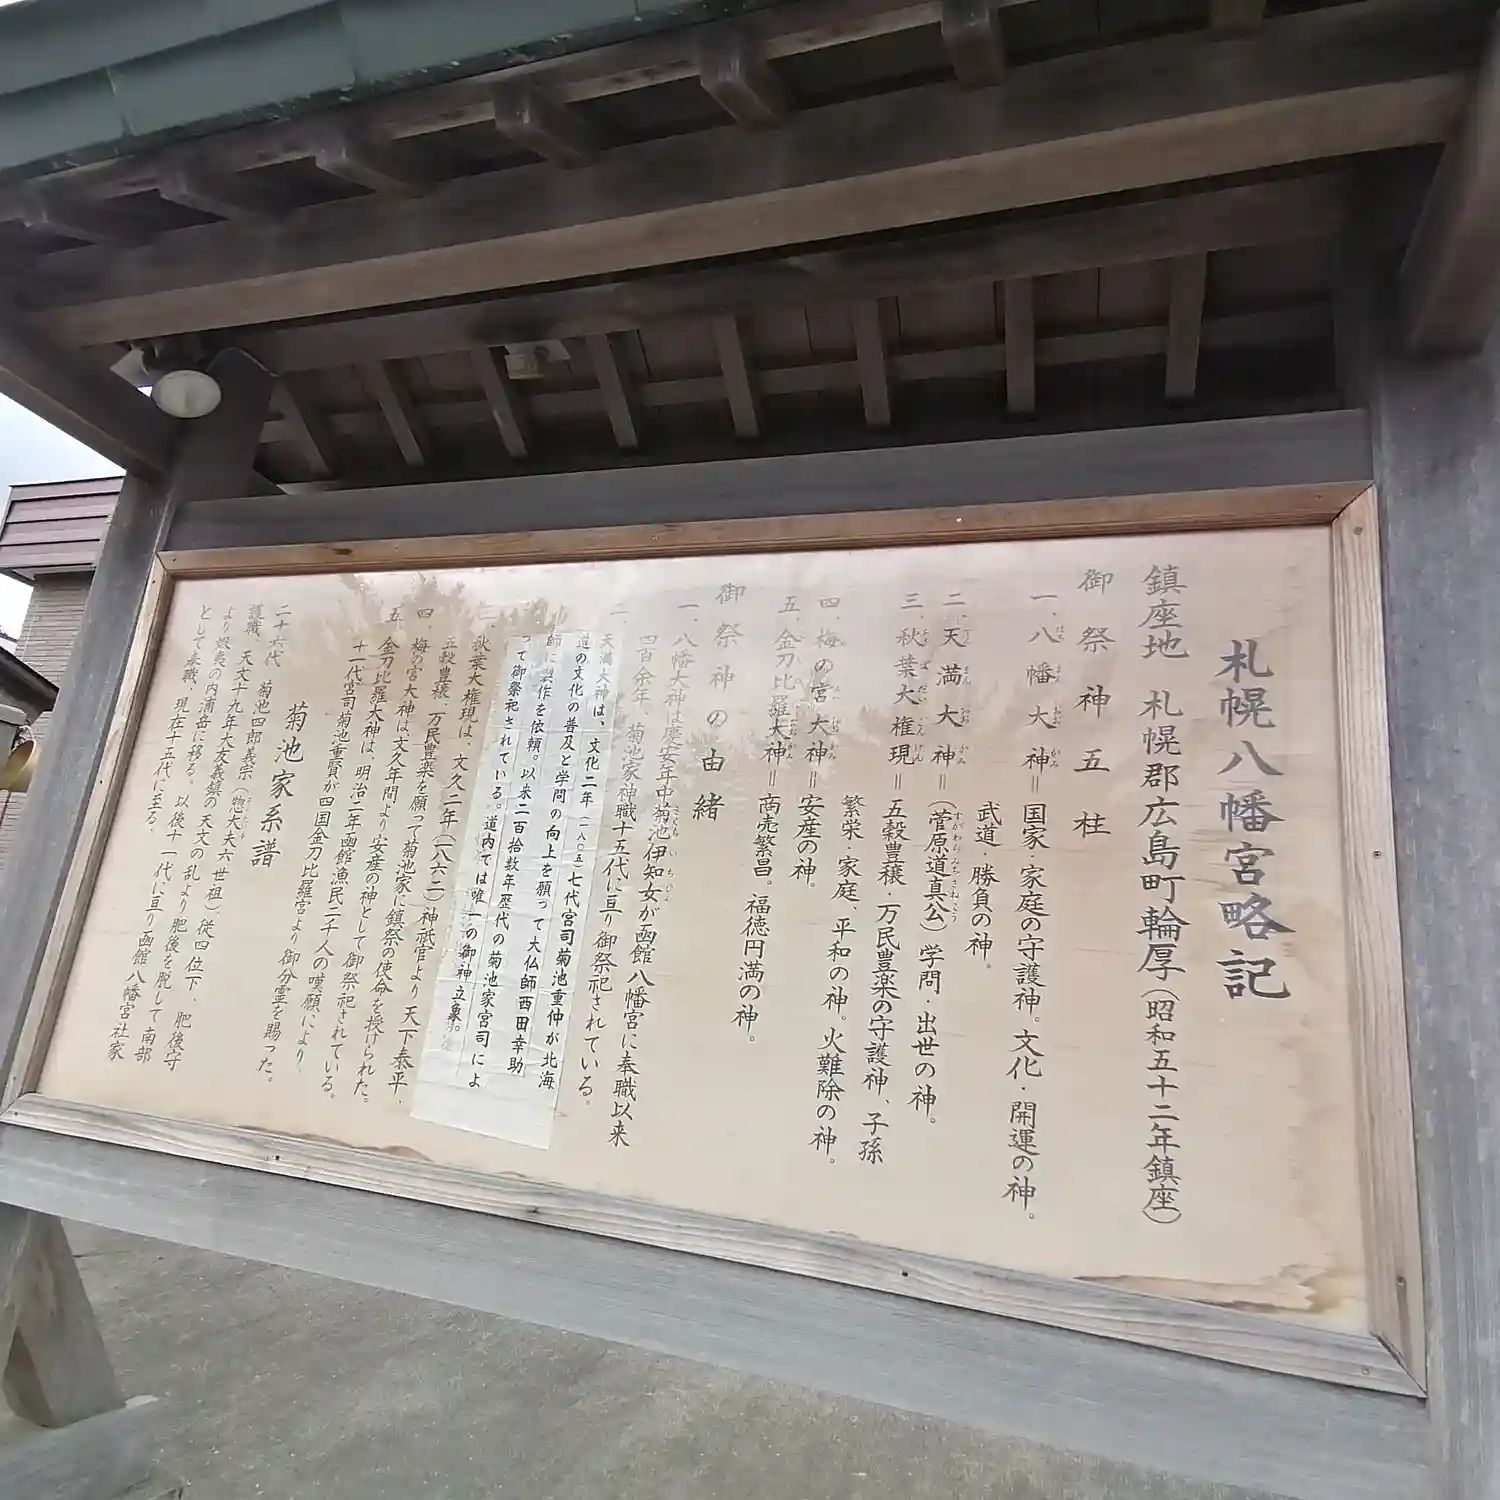 札幌八幡宮略記
鎮座地 札幌郡広島町輪厚（昭和五十二年鎮座）
御祭神五柱
一、八幡大神＝国家・家庭の守護神。文化・開運の神。
武道・勝負の神。
二、天満大神＝（菅原道真公）学問・出世の神。
三、秋葉大権現＝五穀豊穣・万民豊楽の守護神、子孫
繁栄・家庭、平和の神。火難除の神。
四、梅の宮大神＝安産の神。
五、金刀比羅大神＝商売繁昌。福徳円満の神。
御祭神の由緒
一、八幡大神は慶安年中菊池伊知女が函館八幡宮に奉職以来
四百余年、菊池家神職十五代に亘り御祭祀されている。
二、天満大神は、文化二年（一八〇五）七代宮司菊池重仲が北海
道の文化の普及と学問の向上を願って大仏師西田幸助
師に製作を依頼。以来二百拾数年歴代の菊池家宮司によ
って御祭祀されている。道内では唯一の御神立象。
三、秋葉大権現は、文久二年（一八六二）神祇官より天下泰平、
五穀豊穣、万民豊楽を願って菊池家に鎮祭の使命を授けられた。
四、梅の宮大神は、文久年間より安産の神として御祭祀されている。
五、金刀比羅大神は、明治二年函館漁民二千人の嘆願により、
十一代宮司菊池重賢が四国金刀比羅宮より御分霊を賜った。
菊池家系譜
二十六代 菊池四郎義宗（惣大夫六世祖）従四位下、肥後守
護職、天文十九年大友義鎮の天文の乱より肥後を脱して南部
より蝦夷の内浦岳に移る。以後十一代に亘り函館八幡宮社家
として奉職、現在十五代に至る。